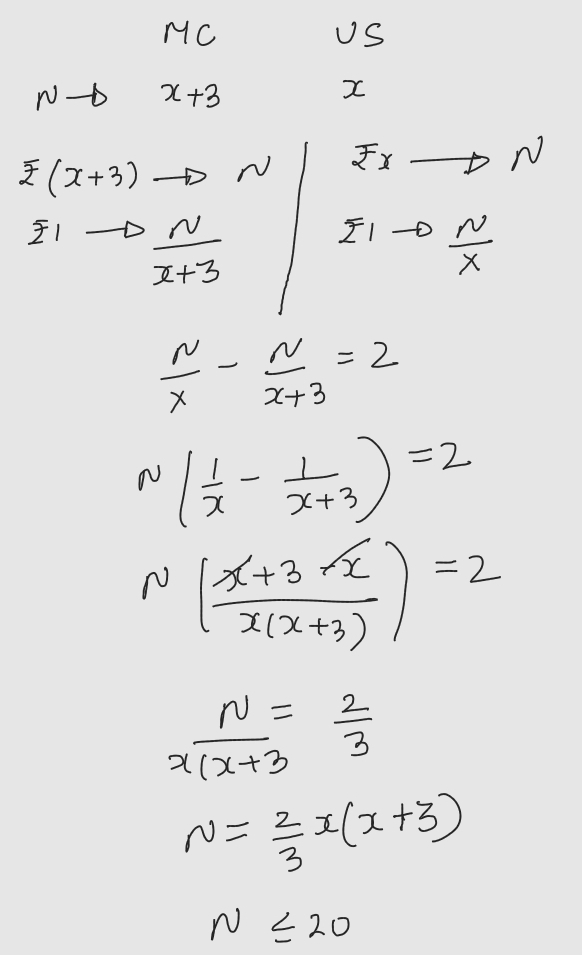 MC US
N → x+3 x
₹(x+3) → N | ₹x → N
₹1 → N/(x+3) | ₹1 → N/x
N/x - N/(x+3) = 2
N(1/x - 1/(x+3)) = 2
N((x+3-x)/(x(x+3))) = 2
N/(x(x+3) = 2/3
N = 2/3 x(x+3)
N ≤ 20